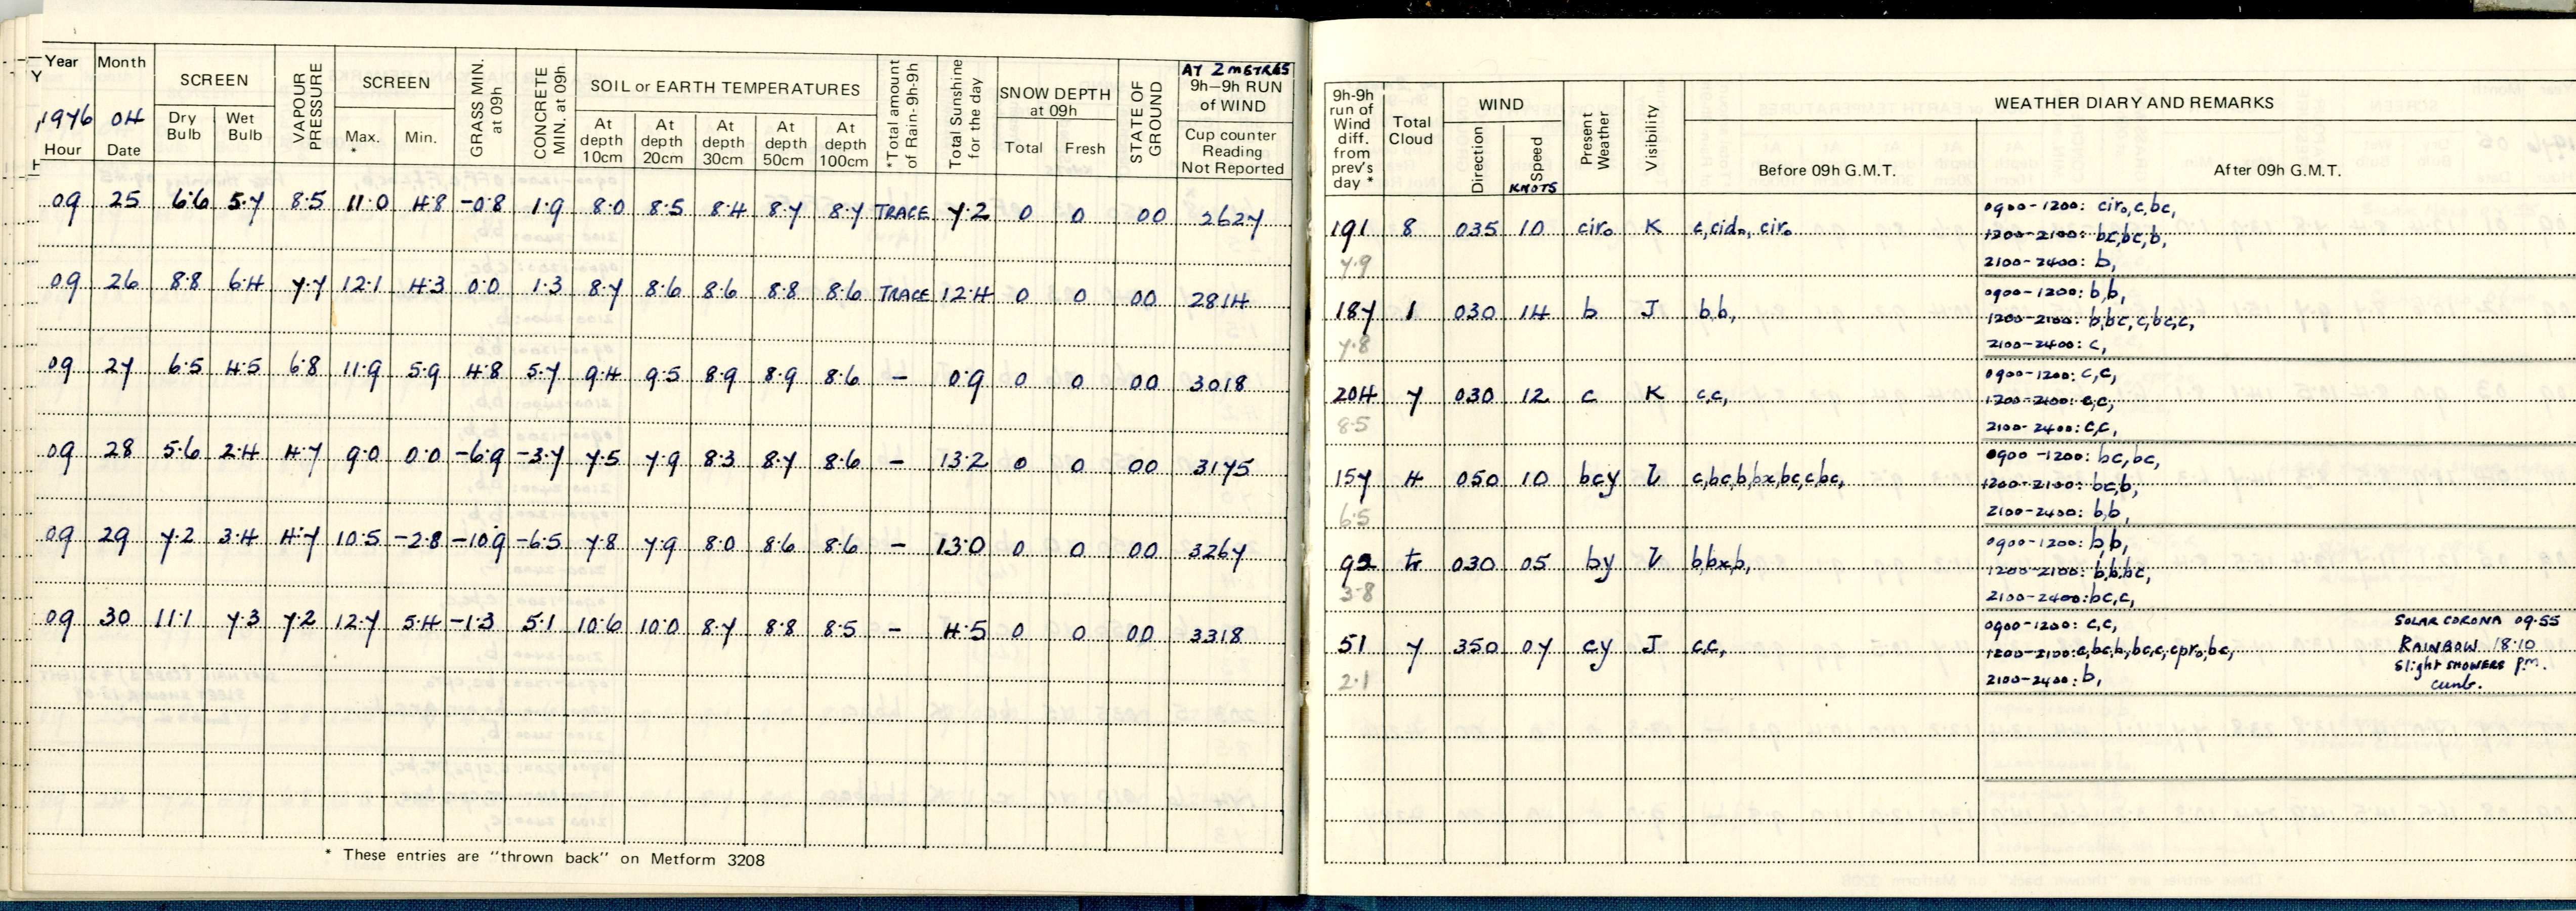 Year Month SCREEN VAPOUR PRESSURE SCREEN GRASS MIN. at 09h CONCRETE MIN. at 09h SOIL or EARTH TEMPERATURES *Total amount of Rain-9h-9h Total Sunshine for the day SNOW DEPTH at 09h STATE OF GROUND AT 2 METRES 9h-9h RUN of WIND
1976 04 Dry Bulb Wet Bulb Max. * Min. At depth 10cm At depth 20cm At depth 30cm At depth 50cm At depth 100cm Total Fresh Cup counter Reading Not Reported
Hour Date
09 25 6.6 5.7 8.5 11.0 4.8 -0.8 1.9 8.0 8.5 8.4 8.7 8.7 TRACE 7.2 0 0 00 2627
09 26 8.8 6.4 7.7 12.1 4.3 0.0 1.3 8.7 8.6 8.6 8.8 8.6 TRACE 12.4 0 0 00 2814
09 27 6.5 4.5 6.8 11.9 5.9 4.8 5.7 9.4 9.5 8.9 8.9 8.6 - 0.9 0 0 00 3018
09 28 5.6 2.4 4.7 9.0 0.0 -6.9 -3.7 7.5 7.9 8.3 8.7 8.6 - 13.2 0 0 00 3175
09 29 7.2 3.4 4.7 10.5 -2.8 -10.9 -6.5 7.8 7.9 8.0 8.6 8.6 - 13.0 0 0 00 3267
09 30 11.1 7.3 7.2 12.7 5.4 -1.3 5.1 10.6 10.0 8.7 8.8 8.5 - 4.5 0 0 00 3318
* These entries are "thrown back" on Metform 3208
9h-9h run of Wind diff. from prev's day * Total Cloud WIND Present Weather Visibility WEATHER DIARY AND REMARKS
Direction Speed KNOTS Before 09h G.M.T. After 09h G.M.T.
0900-1200: ciro,c,bc,
191 8 035 10 ciro K c,cido, ciro 1200-2100: bc,bc,b,
7.9 2100-2400: b,
0900-1200: b,b,
187 1 030 14 b J b,b, 1200-2100: b,bc,c,bc,c,
7.8 2100-2400: c,
0900-1200: c,c,
204 7 030 12 c K c,c, 1200-2100: c,c,
8.5 2100-2400: c,c,
0900-1200: bc,bc,
157 4 050 10 bcy c,bc,b,bx,bc,c,bc, 1200-2100: bc,b,
6.5 2100-2400: b,b,
0900-1200: b,b,
92 tr 030 05 by b,bx,b, 1200-2100: b,b,bc,
3.8 2100-2400: bc,c,
0900-1200: c,c, SOLAR CORONA 09.55
51 7 350 07 cy J c,c, 1200-2100: c,bc,b,bc,c,cpro,bc, RAINBOW 18.10
2.1 2100-2400: b, Slight SHOWERS p.m.
cunb.